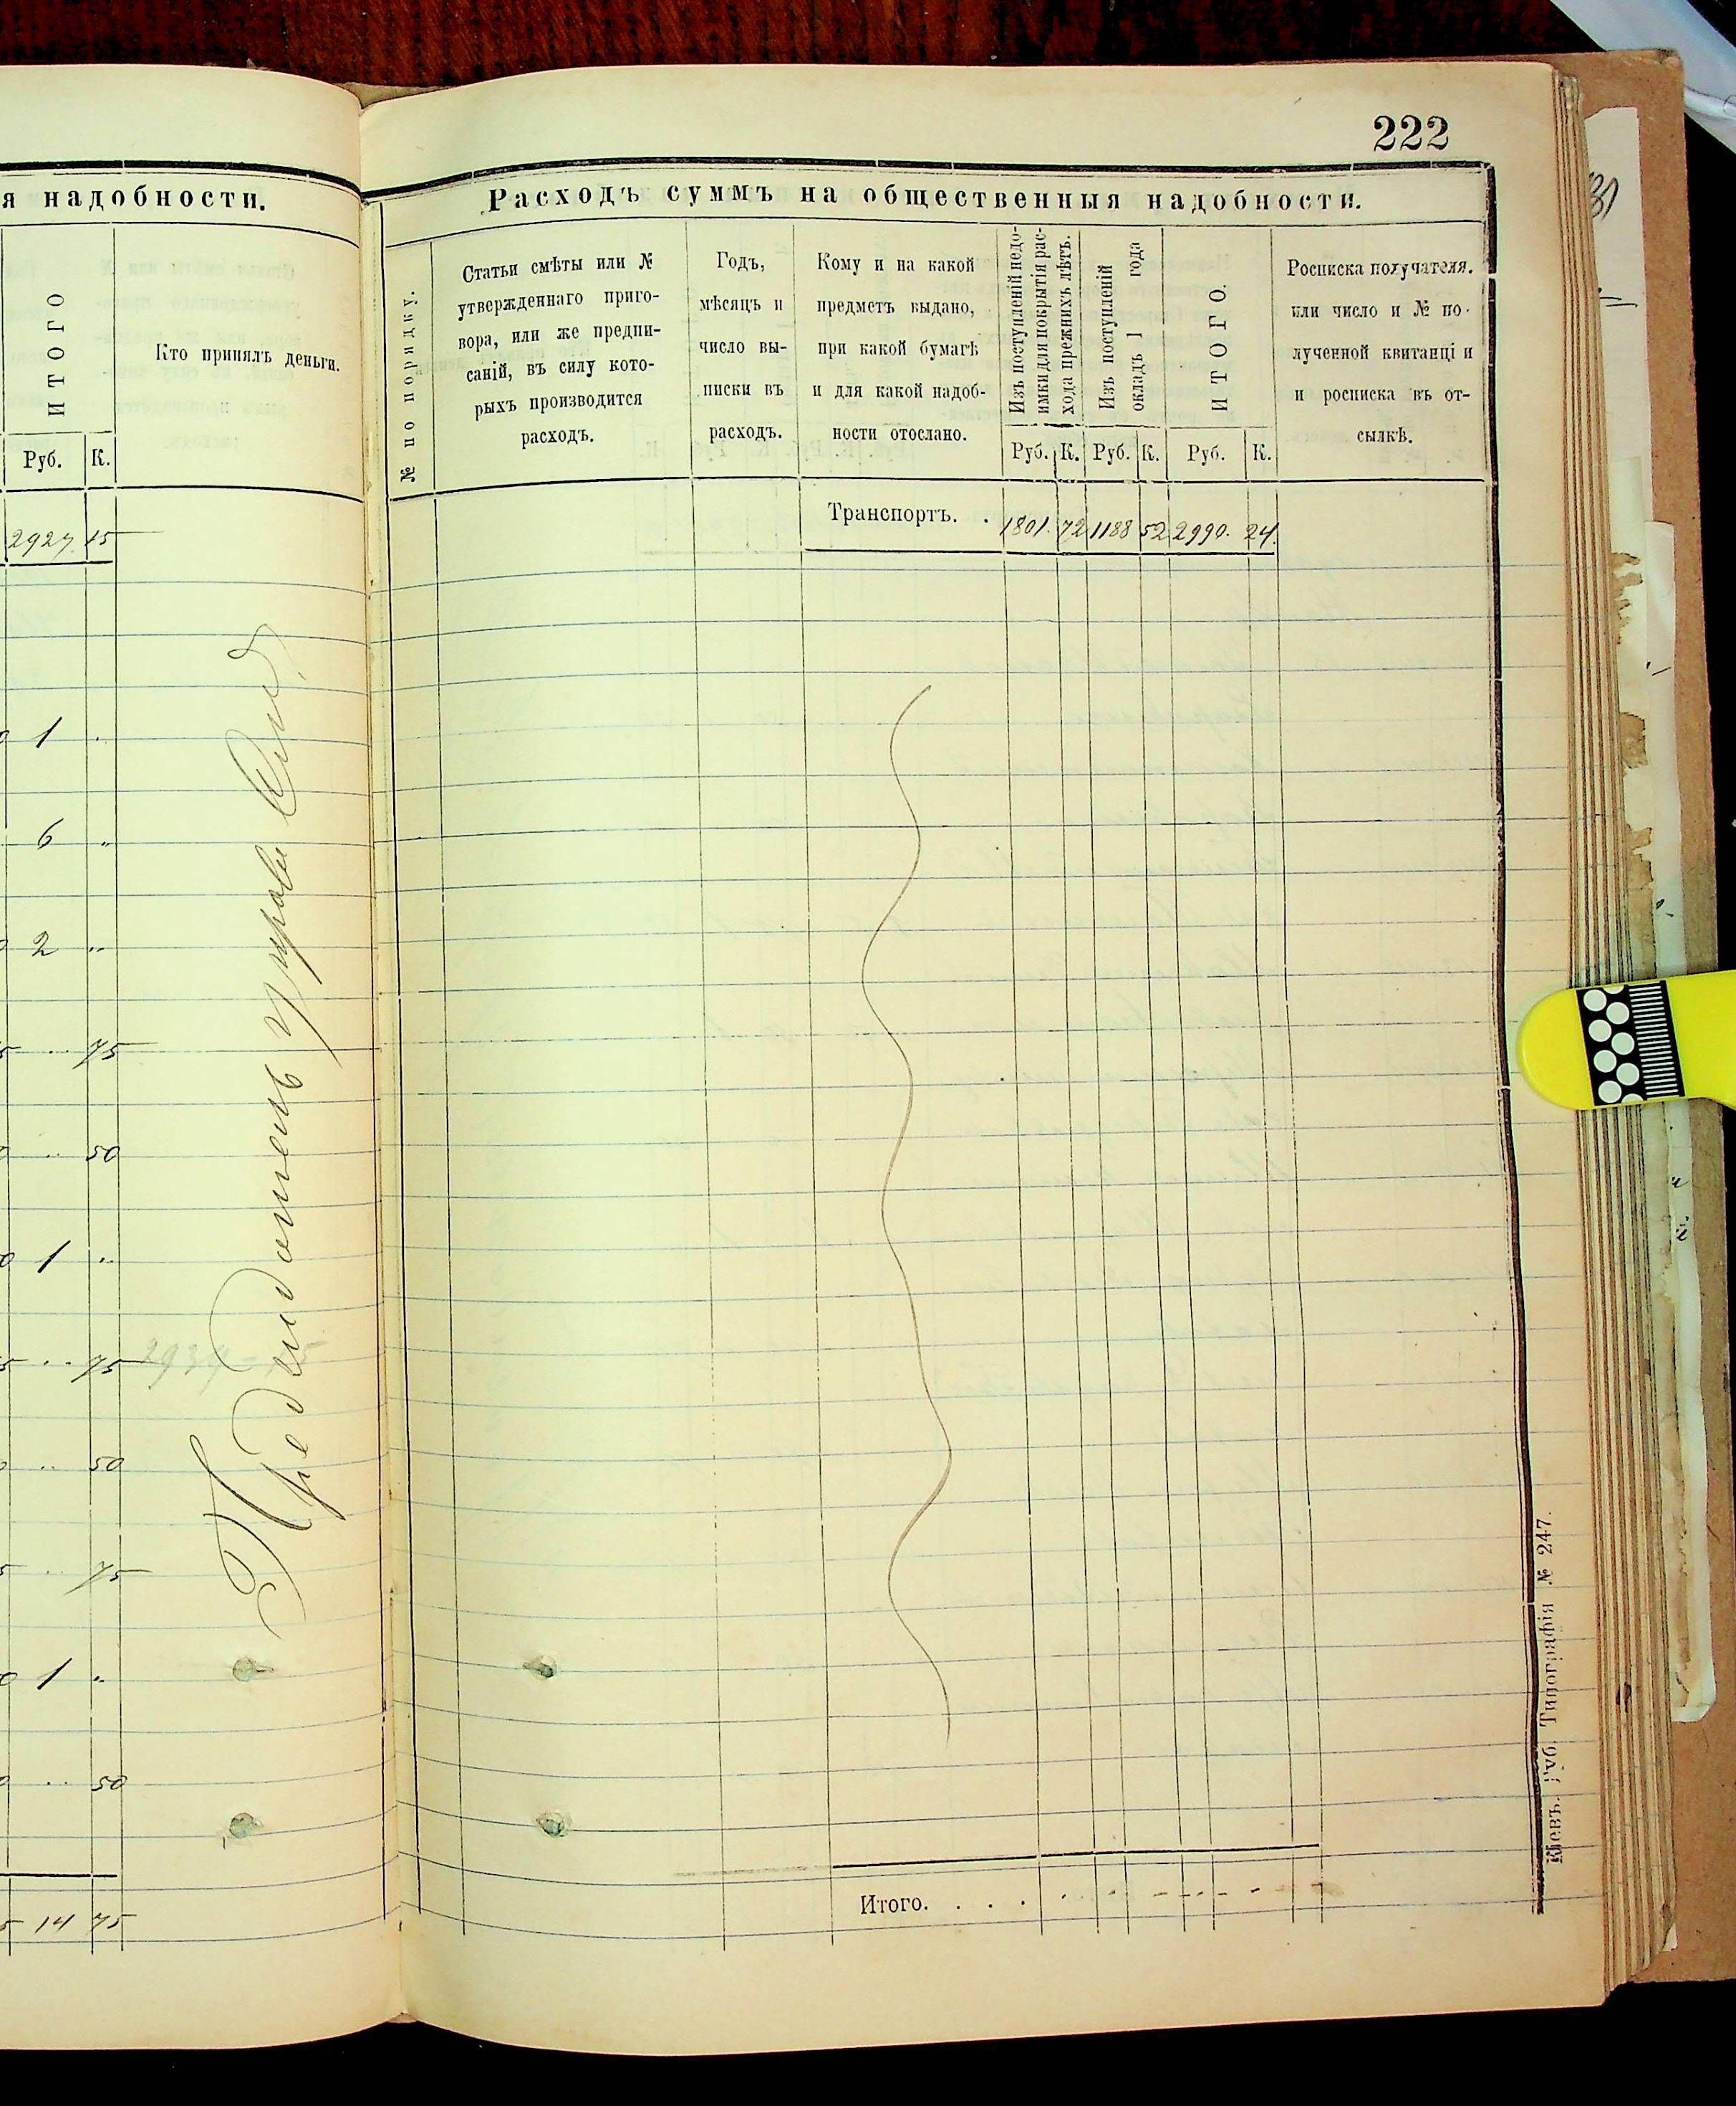 я надобности.
ИТОГО
Кто принялъ деньги.
Руб. К.
2927 15
1 "
6 "
2 "
75
50
1 "
75
50
75
1 "
50
14 75
Предсидатель управы
222
Расходъ суммъ на общественныя надобности.
№ по порядку.
Статьи смѣты или №
утвержденнаго приго-
вора, или же предпи-
саній, въ силу кото-
рыхъ производится
расходъ.
Годъ,
мѣсяцъ и
число вы-
писки въ
расходъ.
Кому и на какой
предметъ выдано,
при какой бумагѣ
и для какой надоб-
ности отослано.
Изъ поступленій недо-
имки для покрытія рас-
хода прежнихъ лѣтъ.
Изъ поступленій
окладъ 1 года
ИТОГО.
Росписка получателя.
или число и № по-
лученной квитанці и
и росписка въ от-
сылкѣ.
Руб. К. Руб. К. Руб. К.
Транспортъ. . 1801. 72 1188 52 2990. 24.
Итого. . . .
Кіевъ. Губ. Типографія № 247.